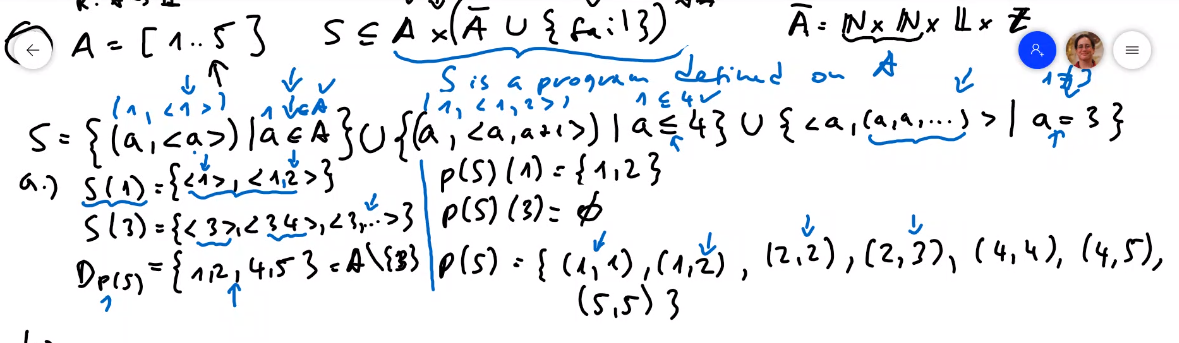 A = [1..5] S ⊆ A × (Ā ∪ {fail}) Ā = ℕ × ℕ × 𝕃 × ℤ
S is a program defined on A
(1, <1>) 1 ∈ A (1, <1,2>) 1 ≤ 4 1 ≠ 3
S = {(a, <a>) | a ∈ A} ∪ {(a, <a, a+1>) | a ≤ 4} ∪ {<a, (a, a, ...)> | a = 3}
a.) S(1) = {<1>, <1,2>} p(S)(1) = {1,2}
S(3) = {<3>, <3 4>, <3,...>} p(S)(3) = ∅
D_{p(S)} = {1,2,4,5} = A\{3} p(S) = {(1,1), (1,2), (2,2), (2,3), (4,4), (4,5),
(5,5)}